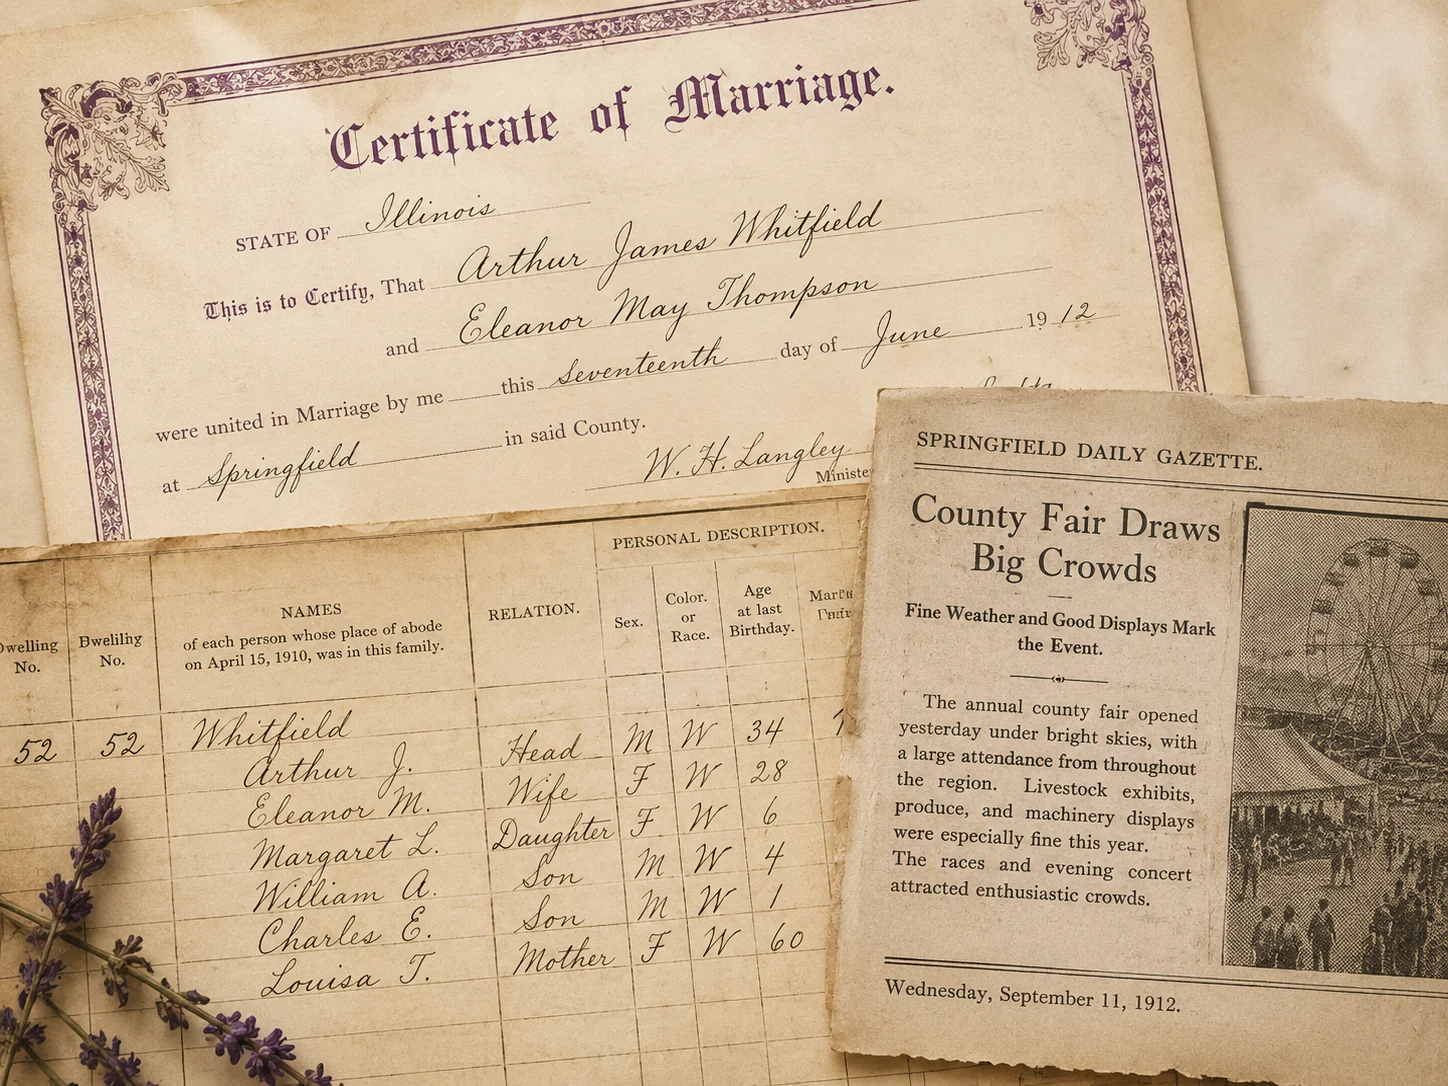 Certificate of Marriage.
STATE OF Illinois
This is to Certify, That Arthur James Whitfield
and Eleanor May Thompson
were united in Marriage by me this seventeenth day of June 1912
at Springfield in said County.
W. H. Langley
Ministe
PERSONAL DESCRIPTION.
Dwelling No.
Dwelilhg No.
NAMES
of each person whose place of abode
on April 15, 1910, was in this family.
RELATION.
Sex.
Color. or Race.
Age at last Birthday.
52 52 Whitfield
Arthur J. Head M W 34
Eleanor M. Wife F W 28
Margaret L. Daughter F W 6
William A. Son M W 4
Charles E. Son M W 1
Louisa T. Mother F W 60
SPRINGFIELD DAILY GAZETTE.
County Fair Draws
Big Crowds
Fine Weather and Good Displays Mark
the Event.
The annual county fair opened
yesterday under bright skies, with
a large attendance from throughout
the region. Livestock exhibits,
produce, and machinery displays
were especially fine this year.
The races and evening concert
attracted enthusiastic crowds.
Wednesday, September 11, 1912.